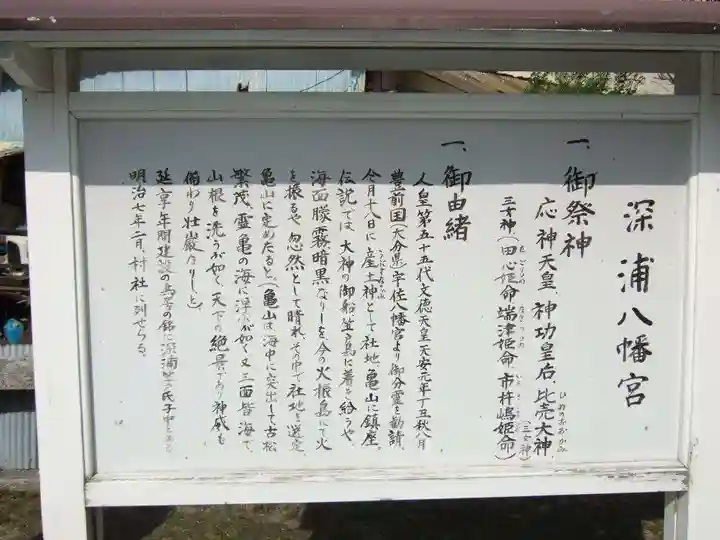 深浦八幡宮
一、御祭神
応神天皇、神功皇后、比売大神、
ひめのおおかみ
(三女神)
三女神、(田心姫命、端津姫命、市杵嶋姫命)
一、御由緒
人皇第五十五代文徳天皇天安元年丁丑秋八月
豊前国(大分県)宇佐八幡宮より御分霊を勧請、
今月十八日に産土神として社地亀山に鎮座。
伝説では、大神の御船笠島に着き給うや、
海面朦霧暗黒なりしを、今の火振島にて火
を振るや、忽然として晴れ、その中で社地を選定、
亀山に定めたると。(亀山は海中に突出して古松
繁茂、霊亀の海に浮ぶが如く又三面皆海で、
山根を洗うが如く、天下の絶景であり神威も
備わり壮厳なりしと)
延享年間建設の鳥居の銘に深浦の氏子中とある
明治七年二月、村社に列せらる。